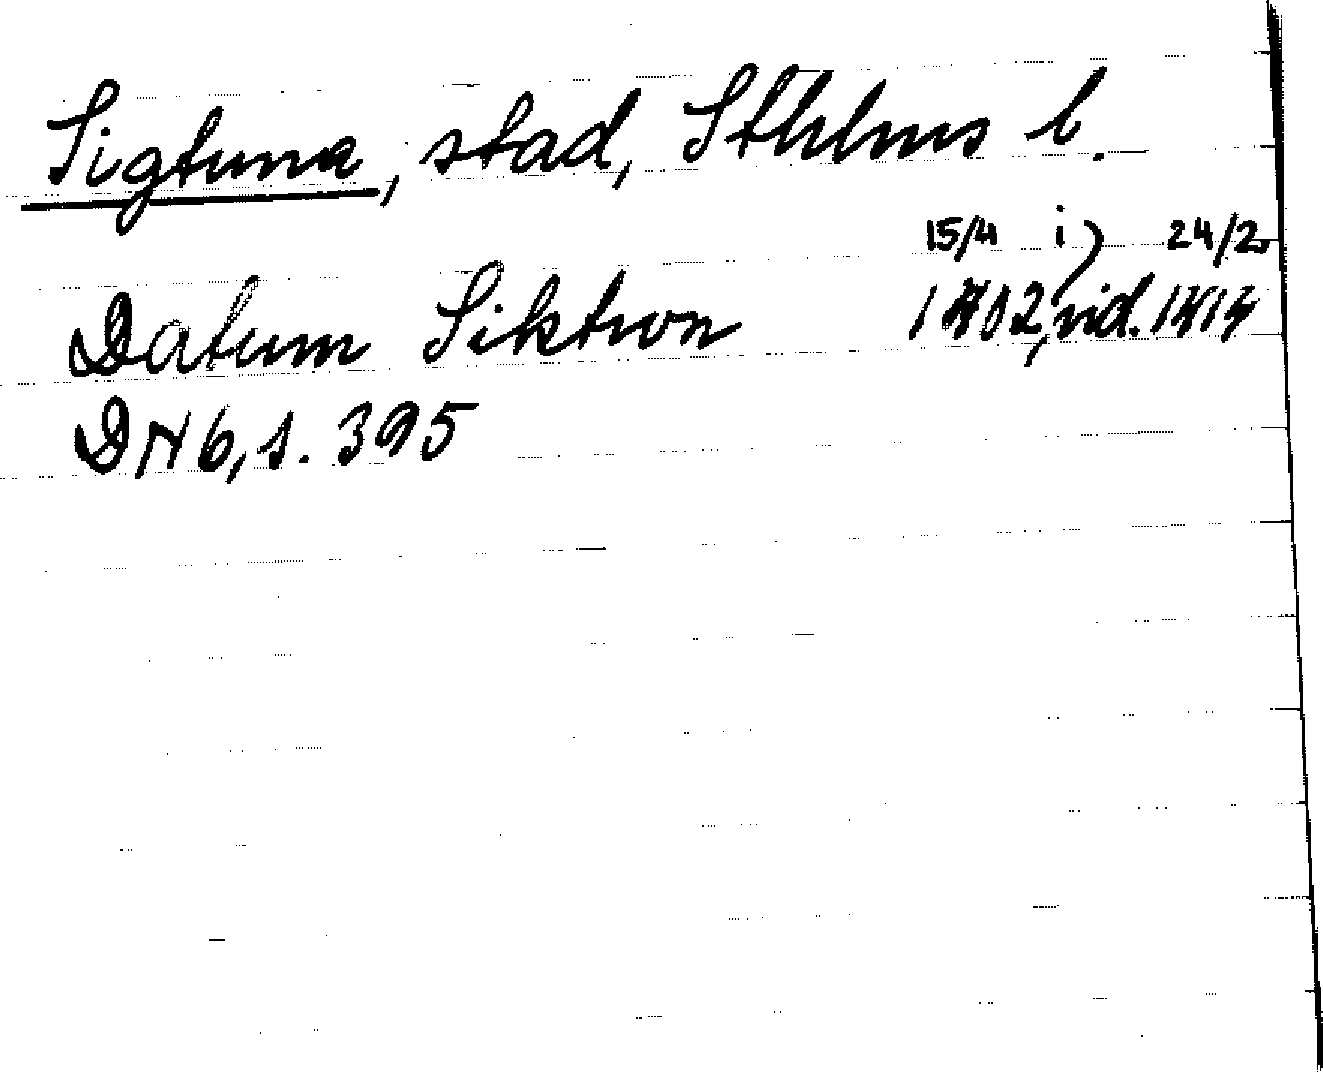 Sigtuna, stad, Sthlms l.
15/4 i 24/2
Datum Siktwn 1402, vid. 1414
DN 6, s. 395